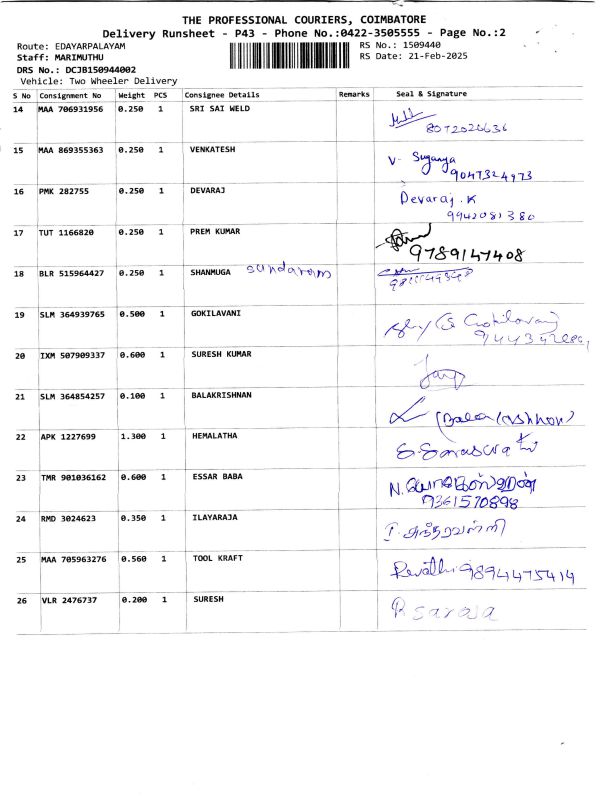 THE PROFESSIONAL COURIERS, COIMBATORE
Delivery Runsheet - P43 - Phone No.:0422-3505555 - Page No.:2
Route: EDAYARPALAYAM
RS No.: 1509440
Staff: MARIMUTHU
RS Date: 21-Feb-2025
DRS No.: DCJB150944002
Vehicle: Two Wheeler Delivery
S No Consignment No Weight PCS Consignee Details Remarks Seal & Signature
14 MAA 706931956 0.250 1 SRI SAI WELD
8072020636
15 MAA 869355363 0.250 1 VENKATESH V- Suganya
9047324973
16 PMK 282755 0.250 1 DEVARAJ Devaraj.K
9942081380
17 TUT 1166820 0.250 1 PREM KUMAR
9789147408
18 BLR 515964427 0.250 1 SHANMUGA sundaram
19 SLM 364939765 0.500 1 GOKILAVANI
20 IXM 507909337 0.600 1 SURESH KUMAR
21 SLM 364854257 0.100 1 BALAKRISHNAN
22 APK 1227699 1.300 1 HEMALATHA
23 TMR 901036162 0.600 1 ESSAR BABA
9361570898
24 RMD 3024623 0.350 1 ILAYARAJA
25 MAA 705963276 0.560 1 TOOL KRAFT Revathi 9894475414
26 VLR 2476737 0.200 1 SURESH P. saroja